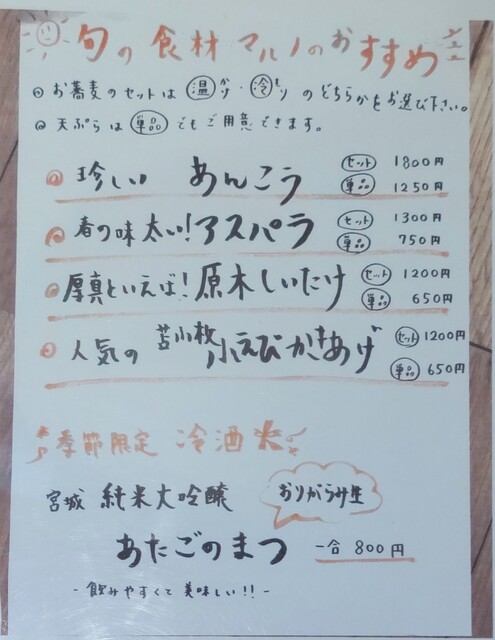 旬の食材 マルノのおすすめ
◎お蕎麦のセットは 温かけ・冷もり のどちらかをお選び下さい。
◎天ぷらは 単品 でもご用意できます。
珍しい あんこう セット 1800円
単品 1250円
春の味 太い!アスパラ セット 1300円
単品 750円
厚真といえば!原木しいたけ セット 1200円
単品 650円
人気の 苫小牧 小えびかきあげ セット 1200円
単品 650円
季節限定 冷酒
宮城 純米大吟醸 おりがらみ生
あたごのまつ 一合 800円
- 飲みやすくて 美味しい!! -